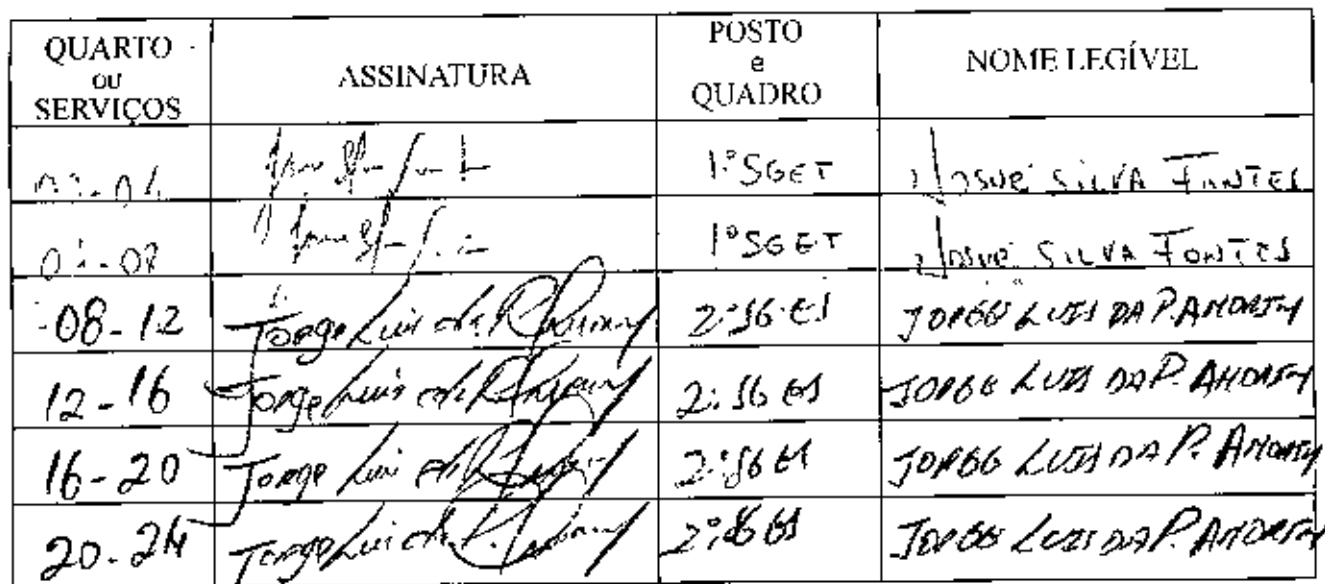 QUARTO
ou
SERVIÇOS
ASSINATURA
POSTO
e
QUADRO
NOME LEGÍVEL
1º SGET JOSUÉ SILVA FONTES
1º SGET JOSUÉ SILVA FONTES
08-12 Jorge Luis da P. Amorim 2º SG ES JORGE LUIS DA P. AMORIM
12-16 Jorge Luis da P. Amorim 2º SG ES JORGE LUIS DA P. AMORIM
16-20 Jorge Luis da P. Amorim 2º SG ES JORGE LUIS DA P. AMORIM
20-24 Jorge Luis da P. Amorim 2º SG ES JORGE LUIS DA P. AMORIM